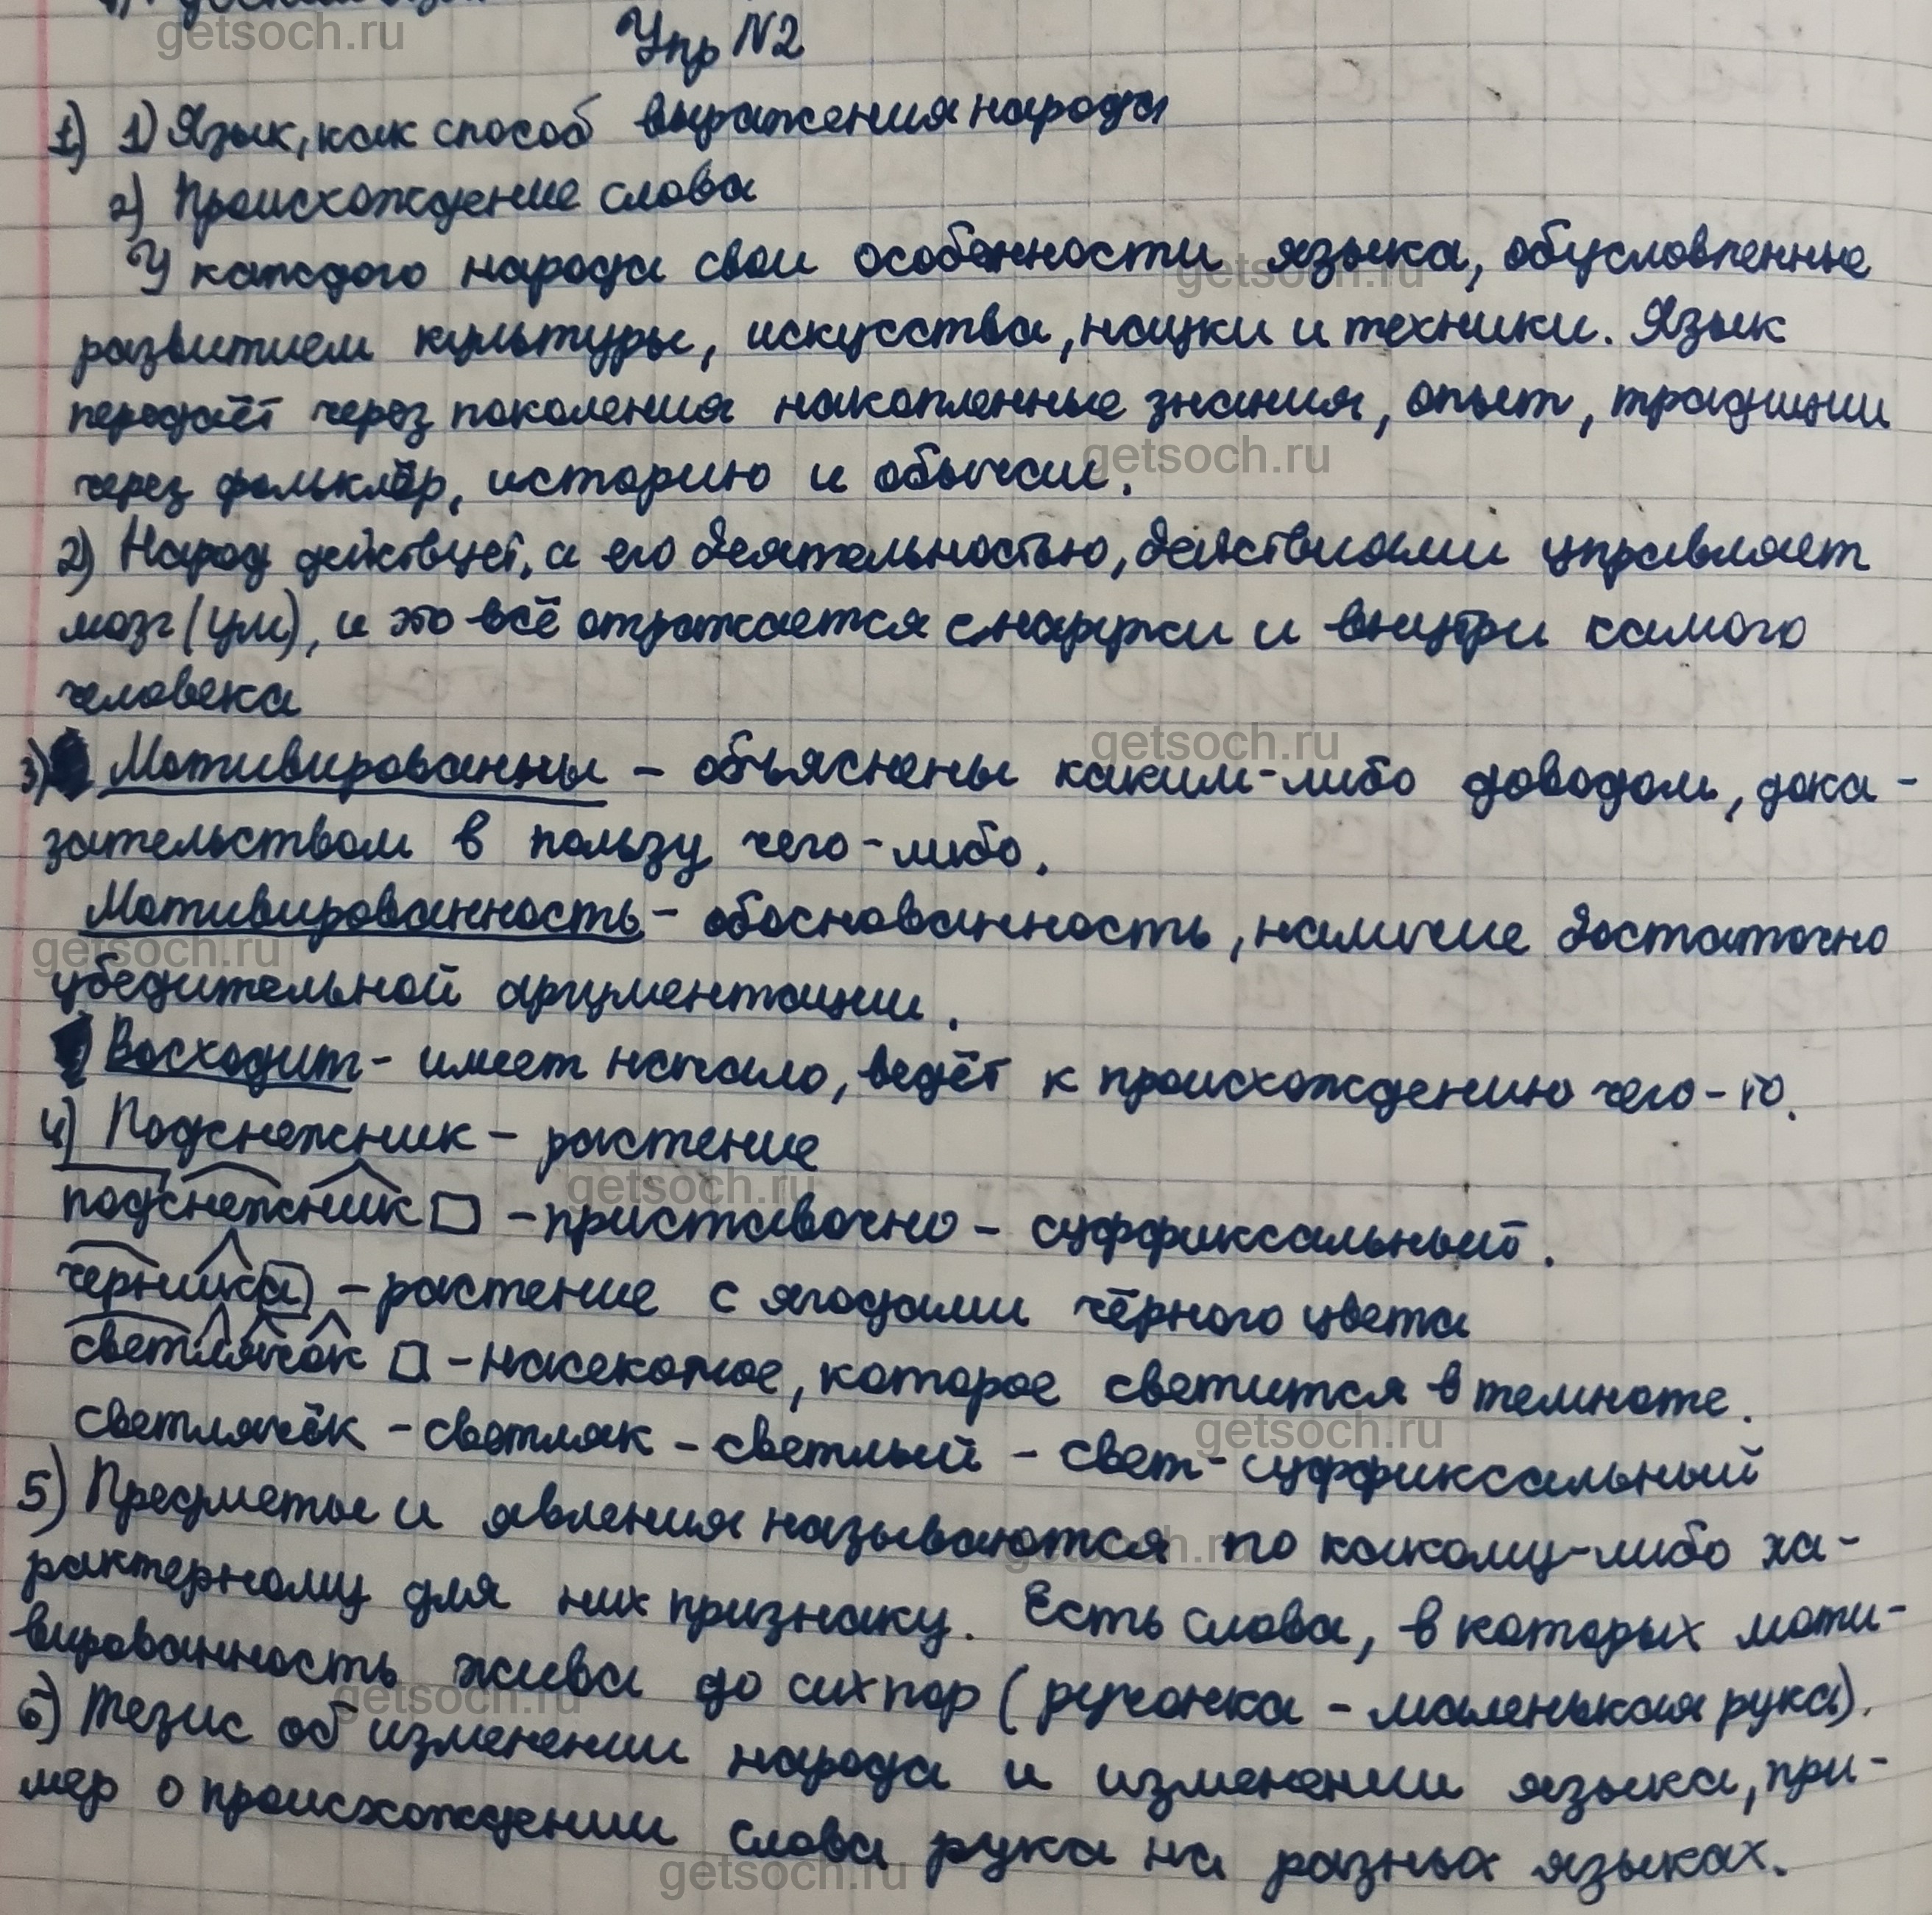 Упр N2
1) 1) Язык, как способ выражения народа
2) Происхождение слова
У каждого народа свои особенности языка, обусловленные
развитием культуры, искусства, науки и техники. Язык
передаёт через поколения накопленные знания, опыт, традиции
через фольклёр, историю и обычаи.
2) Народ действует, а его деятельностью, действиями управляет
мозг (ум), и это всё отражается снаружи и внутри самого
человека
3) Мотивированны - объяснены каким-либо доводом, дока-
зательством в пользу чего-либо.
Мотивированность - обоснованность, наличие достаточно
убедительной аргументации.
Восходит - имеет начало, ведёт к происхождению чего-то.
4) Подснежник - растение
подснежник - приставочно - суффиксальный.
черника - растение с ягодами чёрного цвета
светлячок - насекомое, которое светится в темноте.
светлячёк - светляк - светлый - свет - суффиксальный
5) Предметы и явления называются по какому-либо ха-
рактерному для них признаку. Есть слова, в которых моти-
вированность жива до сих пор (ручонка - маленькая рука).
6) Тезис об изменении народа и изменении языка, при-
мер о происхождении слова рука на разных языках.
getsoch.ru
getsoch.ru
getsoch.ru
getsoch.ru
getsoch.ru
getsoch.ru
getsoch.ru
getsoch.ru
getsoch.ru
getsoch.ru